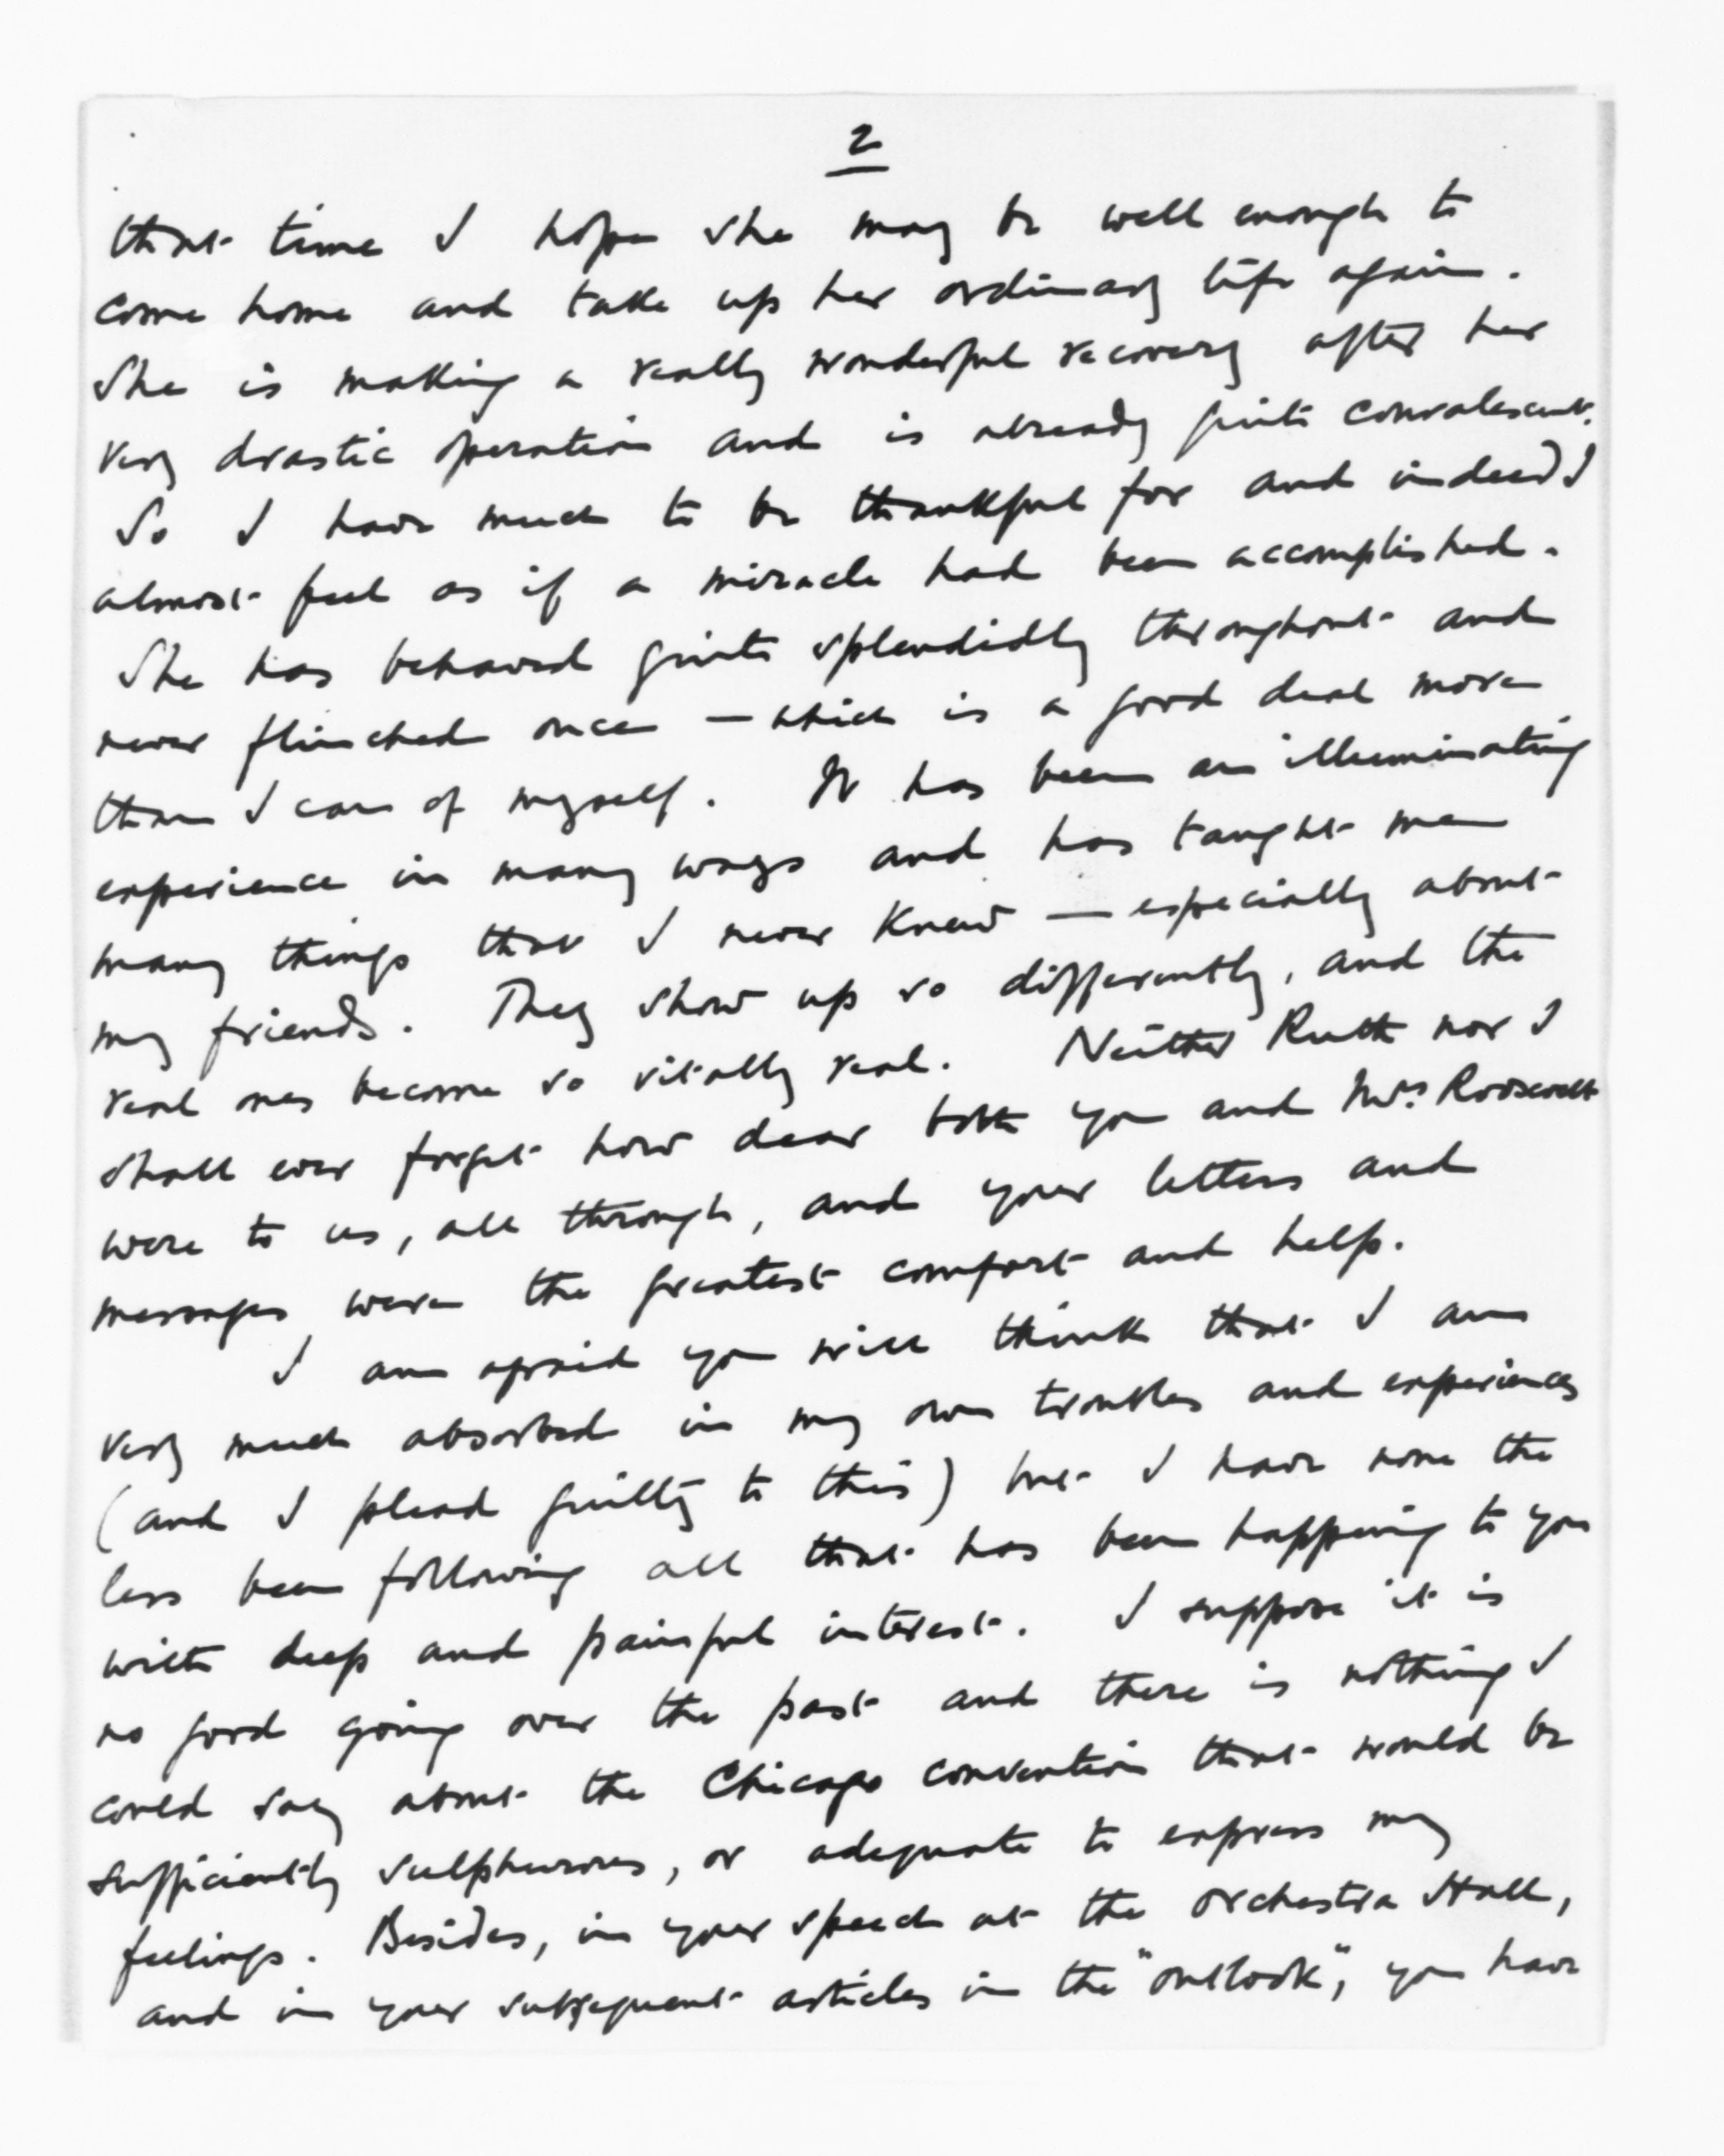 2
that time I hope she may be well enough to
come home and take up her ordinary life again.
She is making a really wonderful recovery after her
very drastic operation and is already quite convalescent.
So I have much to be thankful for and indeed I
almost feel as if a miracle had been accomplished.
She has behaved quite splendidly throughout and
never flinched once — which is a good deal more
than I can of myself. It has been an illuminating
experience in many ways and has taught me
many things that I never knew — especially about
my friends. They show up so differently, and the
real ones become so vitally real. Neither Ruth nor I
shall ever forget how dear both you and Mrs. Roosevelt
were to us, all through, and your letters and
messages were the greatest comfort and help.
I am afraid you will think that I am
very much absorbed in my own troubles and experiences
(and I plead guilty to this) but I have none the
less been following all that has been happening to you
with deep and painful interest. I suppose it is
no good going over the past and there is nothing I
could say about the Chicago convention that would be
sufficiently sulphurous, or adequate to express my
feelings. Besides, in your speech at the Orchestra Hall,
and in your subsequent articles in the "Outlook", you have